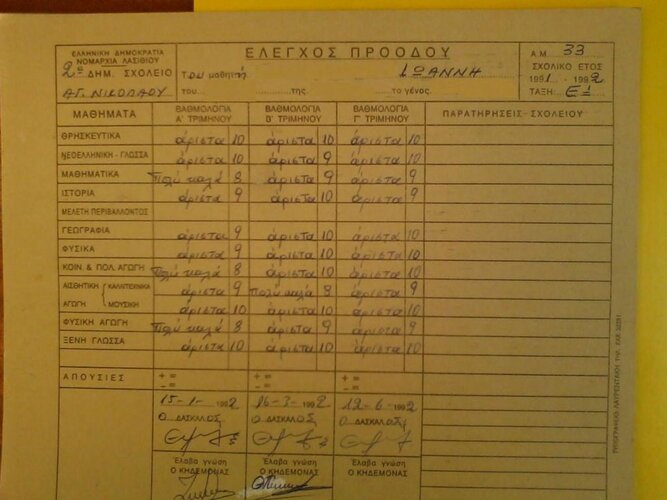 ΕΛΛΗΝΙΚΗ ΔΗΜΟΚΡΑΤΙΑ
ΝΟΜΑΡΧΙΑ ΛΑΣΙΘΙΟΥ
2ο ΔΗΜ. ΣΧΟΛΕΙΟ
ΑΓ. ΝΙΚΟΛΑΟΥ
ΕΛΕΓΧΟΣ ΠΡΟΟΔΟΥ
Του μαθητή ΙΩΑΝΝΗ
του της το γένος.
Α.Μ. 33
ΣΧΟΛΙΚΟ ΕΤΟΣ
1991-1992
ΤΑΞΗ:
ΜΑΘΗΜΑΤΑ ΒΑΘΜΟΛΟΓΙΑ Α' ΤΡΙΜΗΝΟΥ ΒΑΘΜΟΛΟΓΙΑ Β' ΤΡΙΜΗΝΟΥ ΒΑΘΜΟΛΟΓΙΑ Γ' ΤΡΙΜΗΝΟΥ ΠΑΡΑΤΗΡΗΣΕΙΣ - ΣΧΟΛΕΙΟΥ
ΘΡΗΣΚΕΥΤΙΚΑ άριστα 10 άριστα 10 άριστα 10
ΝΕΟΕΛΛΗΝΙΚΗ - ΓΛΩΣΣΑ άριστα 10 άριστα 9 άριστα 10
ΜΑΘΗΜΑΤΙΚΑ Πολύ καλά 8 άριστα 9 άριστα 9
ΙΣΤΟΡΙΑ άριστα 9 άριστα 10 άριστα 9
ΜΕΛΕΤΗ ΠΕΡΙΒΑΛΛΟΝΤΟΣ
ΓΕΩΓΡΑΦΙΑ άριστα 9 άριστα 10 άριστα 10
ΦΥΣΙΚΑ άριστα 9 άριστα 10 άριστα 10
ΚΟΙΝ. & ΠΟΛ. ΑΓΩΓΗ Πολύ καλά 8 άριστα 10 άριστα 10
ΑΙΣΘΗΤΙΚΗ ΑΓΩΓΗ ΚΑΛΛΙΤΕΧΝΙΚΑ άριστα 9 πολύ καλά 8 άριστα 9
ΜΟΥΣΙΚΗ άριστα 10 άριστα 10 άριστα 10
ΦΥΣΙΚΗ ΑΓΩΓΗ Πολύ καλά 8 άριστα 9 άριστα 9
ΞΕΝΗ ΓΛΩΣΣΑ άριστα 10 άριστα 10 άριστα 10
ΑΠΟΥΣΙΕΣ + = + = + =
- = - = - =
15-1-1992 16-3-1992 12-6-1992
Ο ΔΑΣΚΑΛΟΣ Ο ΔΑΣΚΑΛΟΣ Ο ΔΑΣΚΑΛΟΣ
Έλαβα γνώση Έλαβα γνώση Έλαβα γνώση
Ο ΚΗΔΕΜΟΝΑΣ Ο ΚΗΔΕΜΟΝΑΣ Ο ΚΗΔΕΜΟΝΑΣ